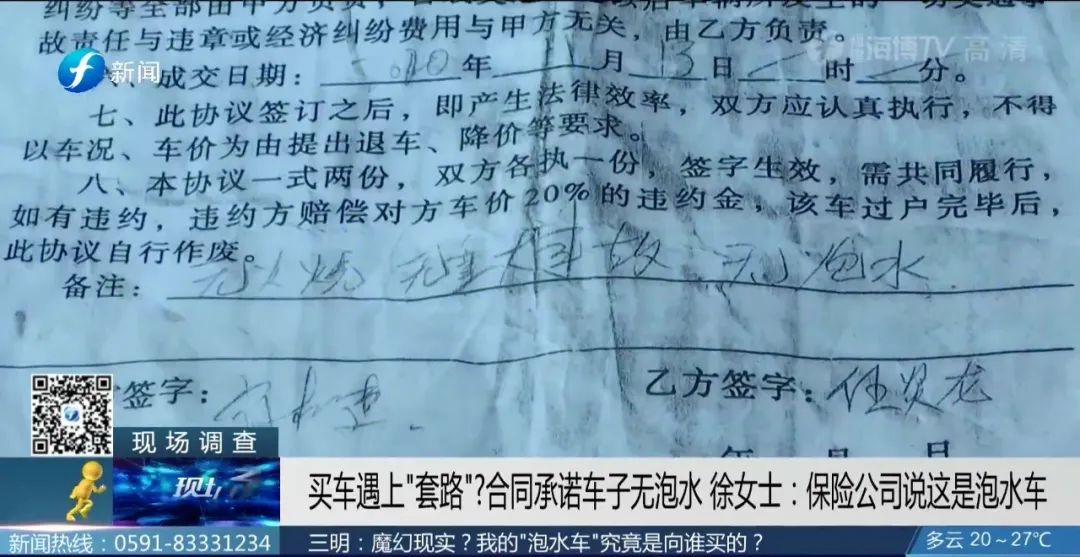 纠纷等全部由甲方负责,
故责任与违章或经济纠纷费用与甲方无关,由乙方负责。
海博TV 高清
新闻
成交日期: 年 11 月 13 日 时 分。
七、此协议签订之后,即产生法律效率,双方应认真执行,不得
以车况、车价为由提出退车、降价等要求。
八、本协议一式两份,双方各执一份,签字生效,需共同履行,
如有违约,违约方赔偿对方车价20%的违约金,该车过户完毕后,
此协议自行作废。
备注:无火烧 无重大事故 无泡水
签字:
乙方签字:任贤龙
年 月 日
现场调查
现场
买车遇上"套路"?合同承诺车子无泡水 徐女士:保险公司说这是泡水车
新闻热线:0591-83331234
三明:魔幻现实?我的"泡水车"究竟是向谁买的?
多云 20~27℃